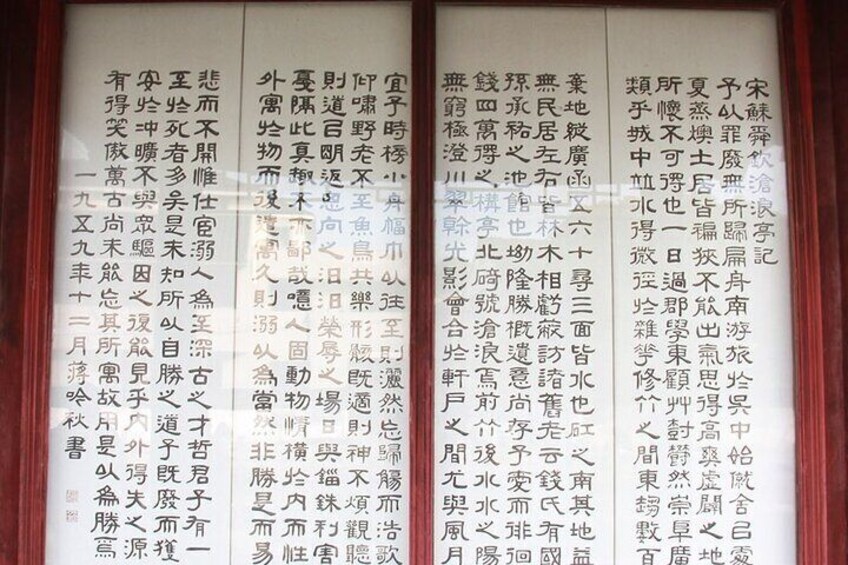 宋蘇舜欽滄浪亭記
予以罪廢無所歸扁舟南游旅於吳中始僦舍以處
夏蒸燠土居皆褊狹不能出氣思得高爽虛闢之地
所懷不可得也一日過郡學東顧艸樹鬱然崇阜廣
類乎城中並水得微徑於雜花修竹之間東趨數百
棄地縱廣函五六十尋三面皆水也矼之南其地益
無民居左右皆林木相虧蔽訪諸舊老云錢氏有國
孫承祐之池館也坳隆勝概遺意尚存予愛而徘徊
錢四萬得之構亭北碕號滄浪焉前竹後水水之陽
無窮極澄川翠幹光影會合於軒戶之間尤與風月
宜予時榜小舟幅巾以往至則灑然忘歸觴而浩歌
仰嘯野老不至魚鳥共樂形骸既適則神不煩觀聽
則道以明返思向之汩汩榮辱之場日與錙銖利害
戛隔此真趣不亦鄙哉噫人固動物情橫於內而性
外寓於物而後遣寓久則溺以為當然非勝是而易
悲而不開惟仕宦溺人為至深古之才哲君子有一
至於死者多矣是未知所以自勝之道予既廢而獲
安於沖曠不與眾驅因之復能見乎內外得失之源
有得笑傲萬古尚未能忘其所寓故用是以為勝焉
一九五九年十二月蔣吟秋書